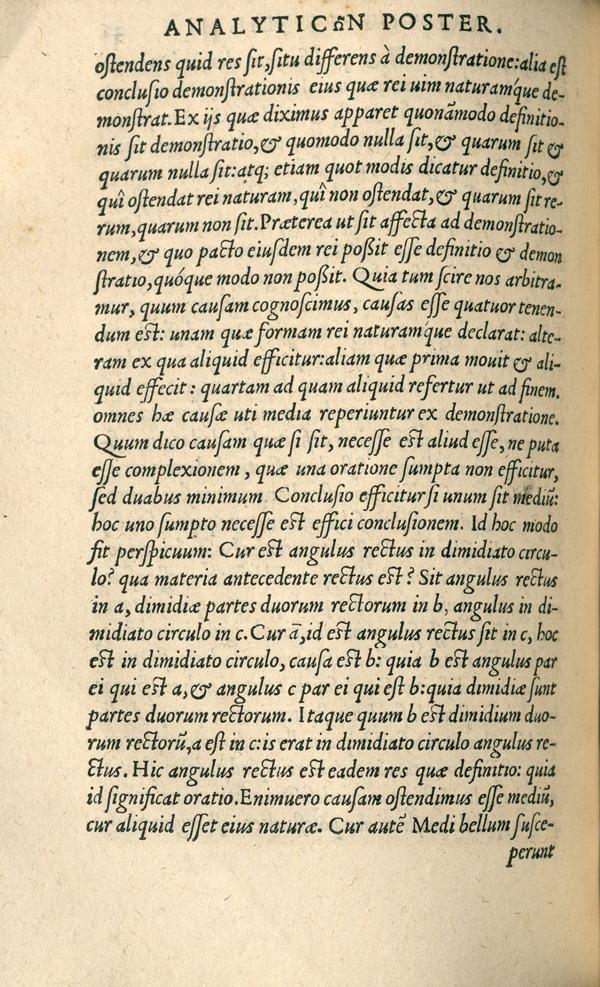 ANALYTICῶN POSTER.
ostendens quid res sit, situ differens à demonstratione: alia est
conclusio demonstrationis eius quæ rei uim naturamq́ue de-
monstrat. Ex ijs quæ diximus apparet quonãmodo definitio-
nis sit demonstratio, & quomodo nulla sit, & quarum sit &
quarum nulla sit: atq; etiam quot modis dicatur definitio, &
quî ostendat rei naturam, quî non ostendat, & quarum sit re-
rum, quarum non sit. Præterea ut sit affecta ad demonstratio-
nem, & quo pacto eiusdem rei poßit esse definitio & demon
stratio, quóque modo non poßit. Quia tum scire nos arbitra-
mur, quum causam cognoscimus, causas esse quatuor tenen-
dum est: unam quæ formam rei naturamq́ue declarat: alte-
ram ex qua aliquid efficitur: aliam quæ prima mouit & ali-
quid effecit: quartam ad quam aliquid refertur ut ad finem.
omnes hæ causæ uti media reperiuntur ex demonstratione.
Quum dico causam quæ si sit, necesse est aliud esse, ne puta
esse complexionem, quæ una oratione sumpta non efficitur,
sed duabus minimum. Conclusio efficitur si unum sit mediũ:
hoc uno sumpto necesse est effici conclusionem. Id hoc modo
fit perspicuum: Cur est angulus rectus in dimidiato circu-
lo? qua materia antecedente rectus est? Sit angulus rectus
in a, dimidiæ partes duorum rectorum in b, angulus in di-
midiato circulo in c. Cur ā, id est angulus rectus sit in c, hoc
est in dimidiato circulo, causa est b: quia b est angulus par
ei qui est a, & angulus c par ei qui est b: quia dimidiæ sunt
partes duorum rectorum. Itaque quum b est dimidium duo-
rum rectorũ, a est in c: is erat in dimidiato circulo angulus re-
ctus. Hic angulus rectus est eadem res quæ definitio: quia
id significat oratio. Enimuero causam ostendimus esse mediũ,
cur aliquid esset eius naturæ. Cur autẽ Medi bellum susce-
perunt